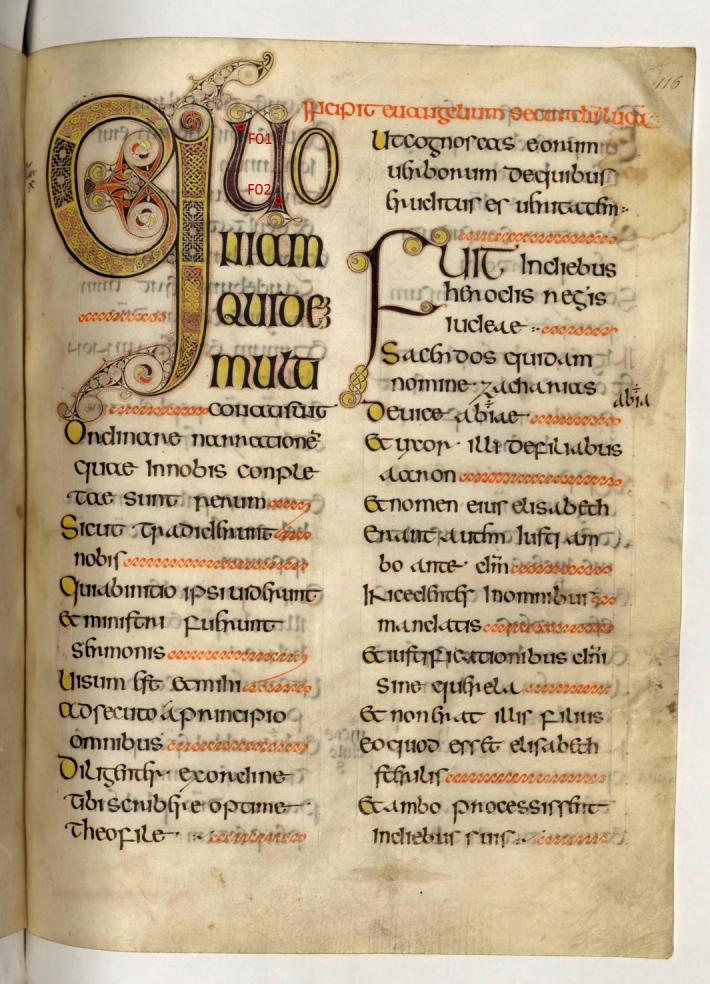 116
Incipit euangelium secundū lucā
QUO
FO1
FO2
niam
quide
multi
conati sunt
Ordinare narrationē
quae In nobis conple
tae sunt rerum
Sicut tradiderunt
nobis
Qui ab initio ipsi uiderunt
et ministri fuerunt
sermonis
Uisum est et mihi
adsecuto á principio
omnibus
Diligenter ex ordine
tibi scribere optime
theofile
Ut cognoscas eorum
uerborum de quibus
eruditus es ueritatem
Fuit In diebus
herodis regis
iudeae
Sacerdos quidam
nomine zacharias
De uice abiae
abia
Et uxor illi de filiabus
aaron
Et nomen eius elisabeth
Erant autem Iusti am
bo ante dm̄
Incedentes In omnibus
mandatis
Et iustificationibus dn̄i
sine querela
Et non erat illis filius
eo quod esset elisabeth
sterilis
Et ambo processissent
In diebus suis